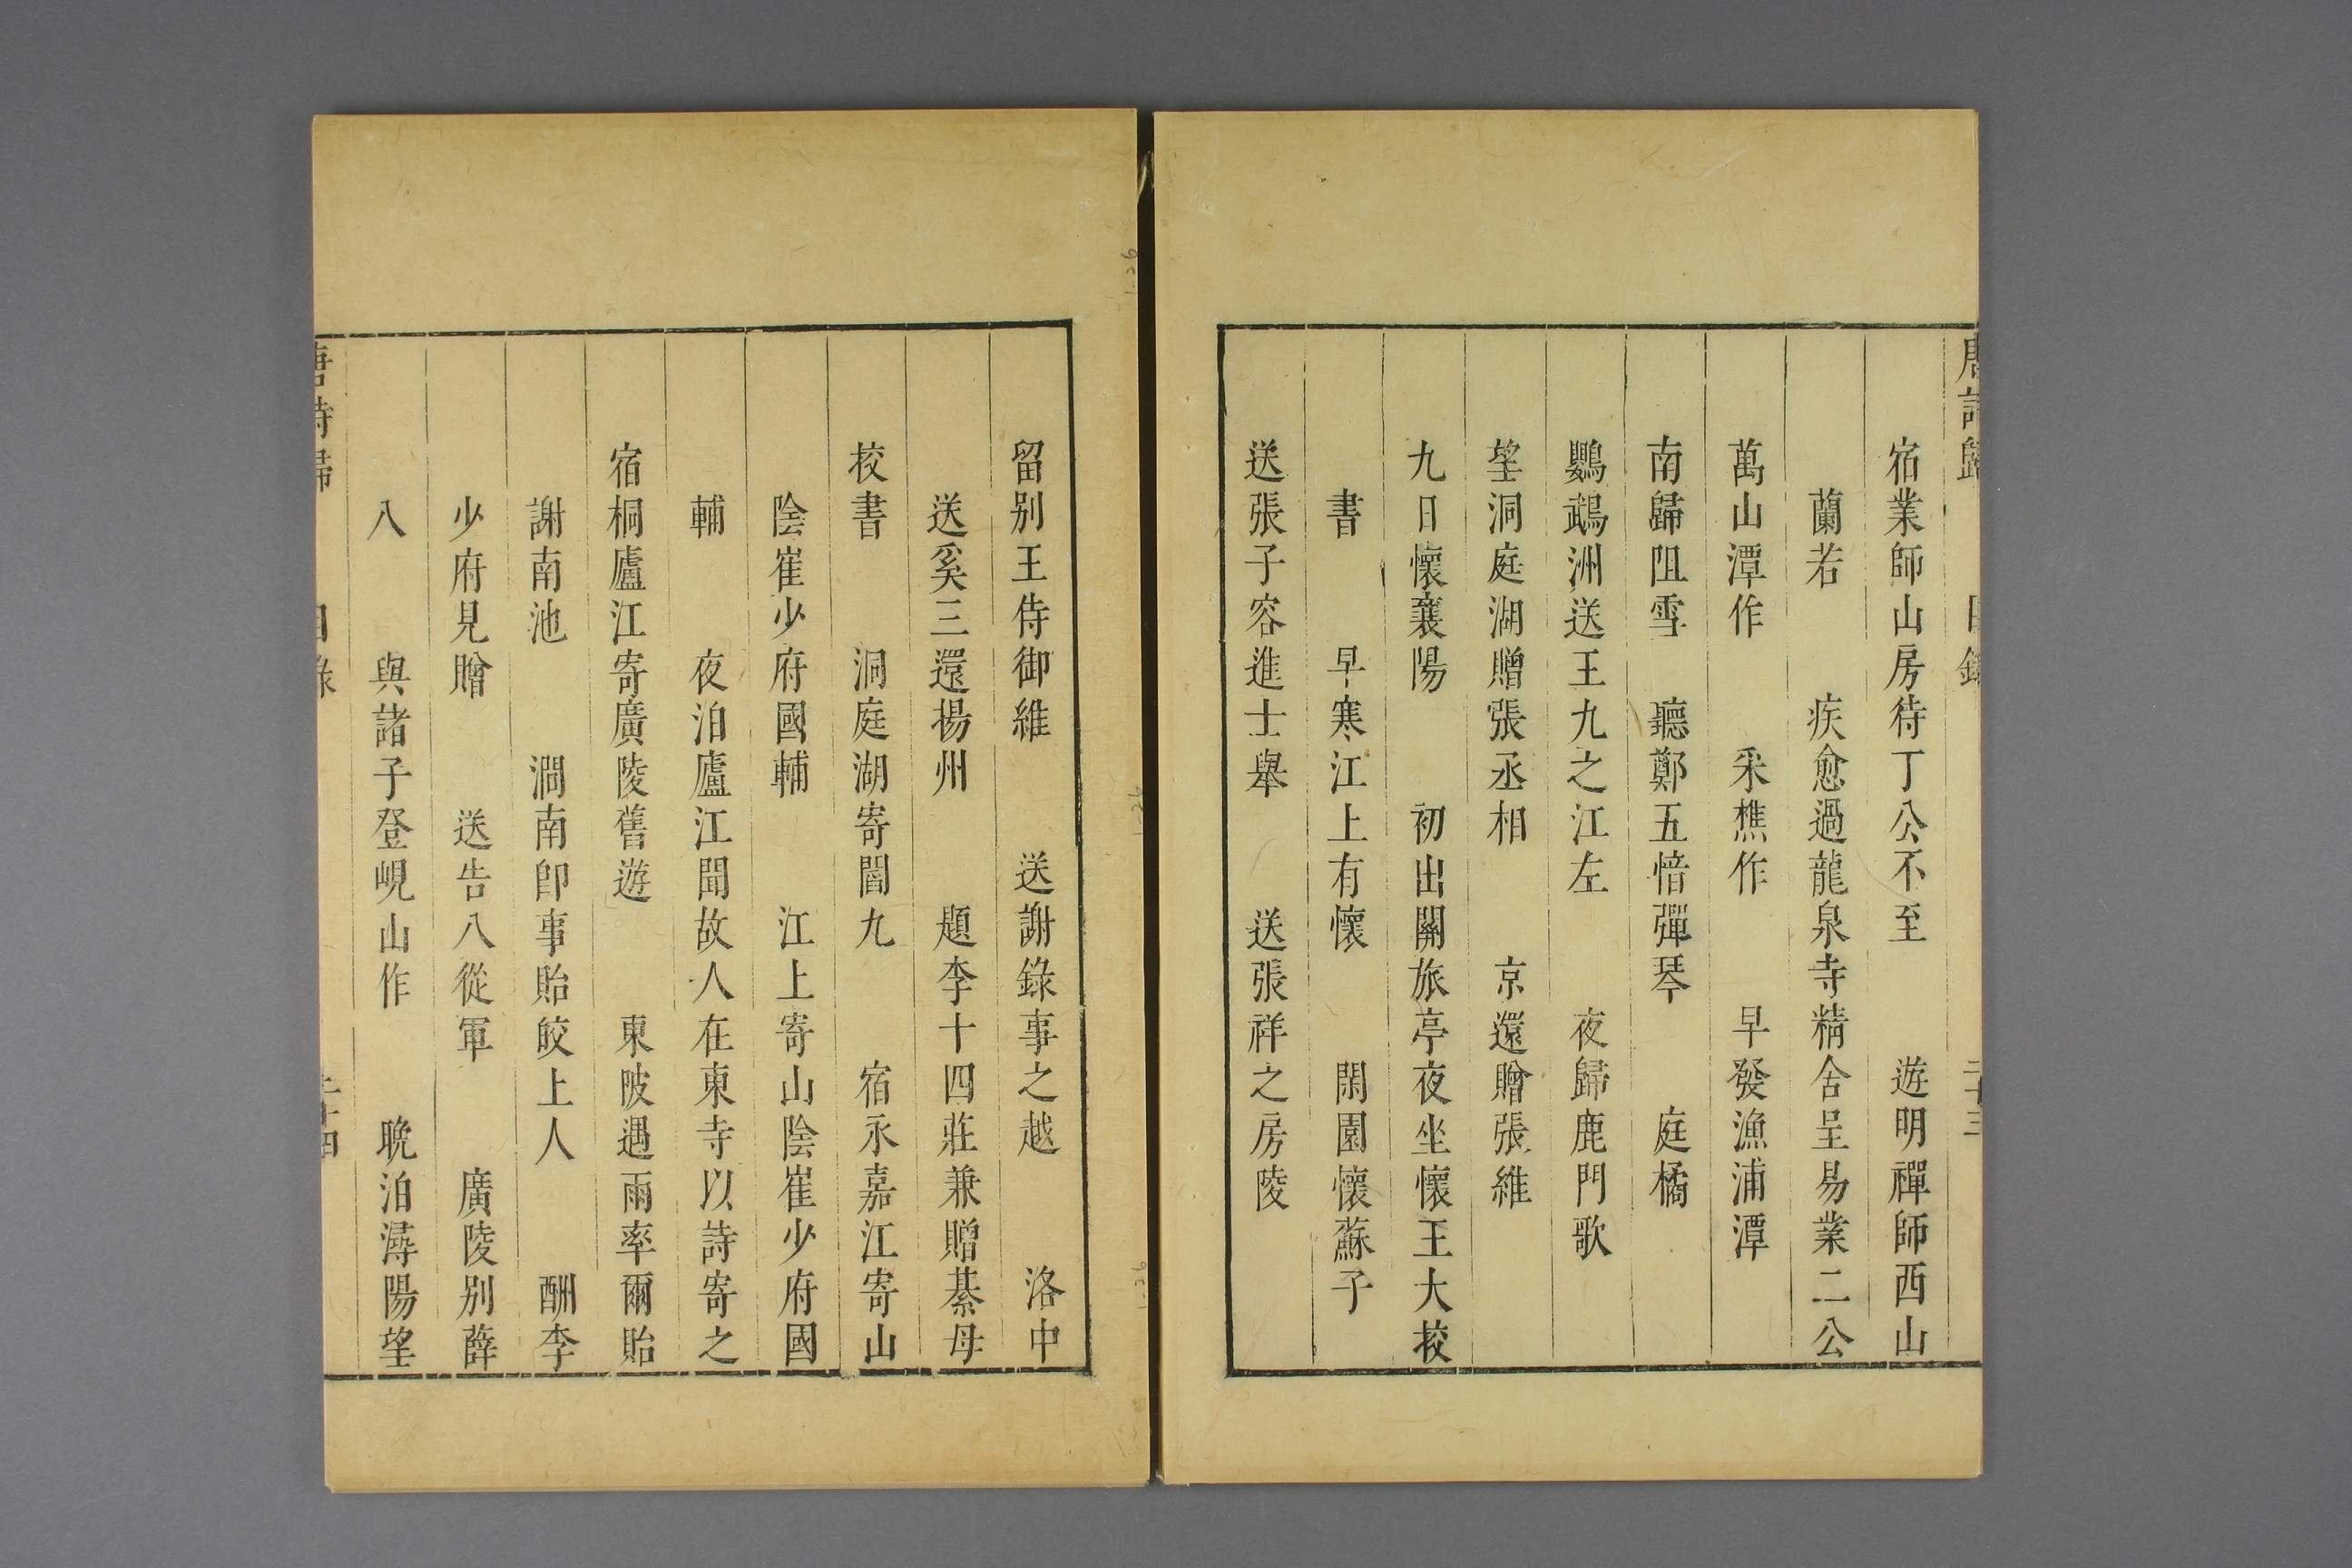 唐詩歸 目錄 二十三
宿業師山房待丁公不至 遊明禪師西山
蘭若 疾愈過龍泉寺精舍呈易業二公
萬山潭作 采樵作 早發漁浦潭
南歸阻雪 聽鄭五愔彈琴 庭橘
鸚鵡洲送王九之江左 夜歸鹿門歌
望洞庭湖贈張丞相 京還贈張維
九日懷襄陽 初出關旅亭夜坐懷王大校
書 早寒江上有懷 閑園懷蘇子
送張子容進士舉 送張祥之房陵
留別王侍御維 送謝錄事之越 洛中
送奚三還揚州 題李十四莊兼贈綦母
校書 洞庭湖寄閻九 宿永嘉江寄山
陰崔少府國輔 江上寄山陰崔少府國
輔 夜泊廬江聞故人在東寺以詩寄之
宿桐廬江寄廣陵舊遊 東陂遇雨率爾貽
謝南池 澗南卽事貽皎上人 酬李
少府見贈 送告八從軍 廣陵別薛
八 與諸子登峴山作 晚泊潯陽望
唐詩歸 目錄 二十四